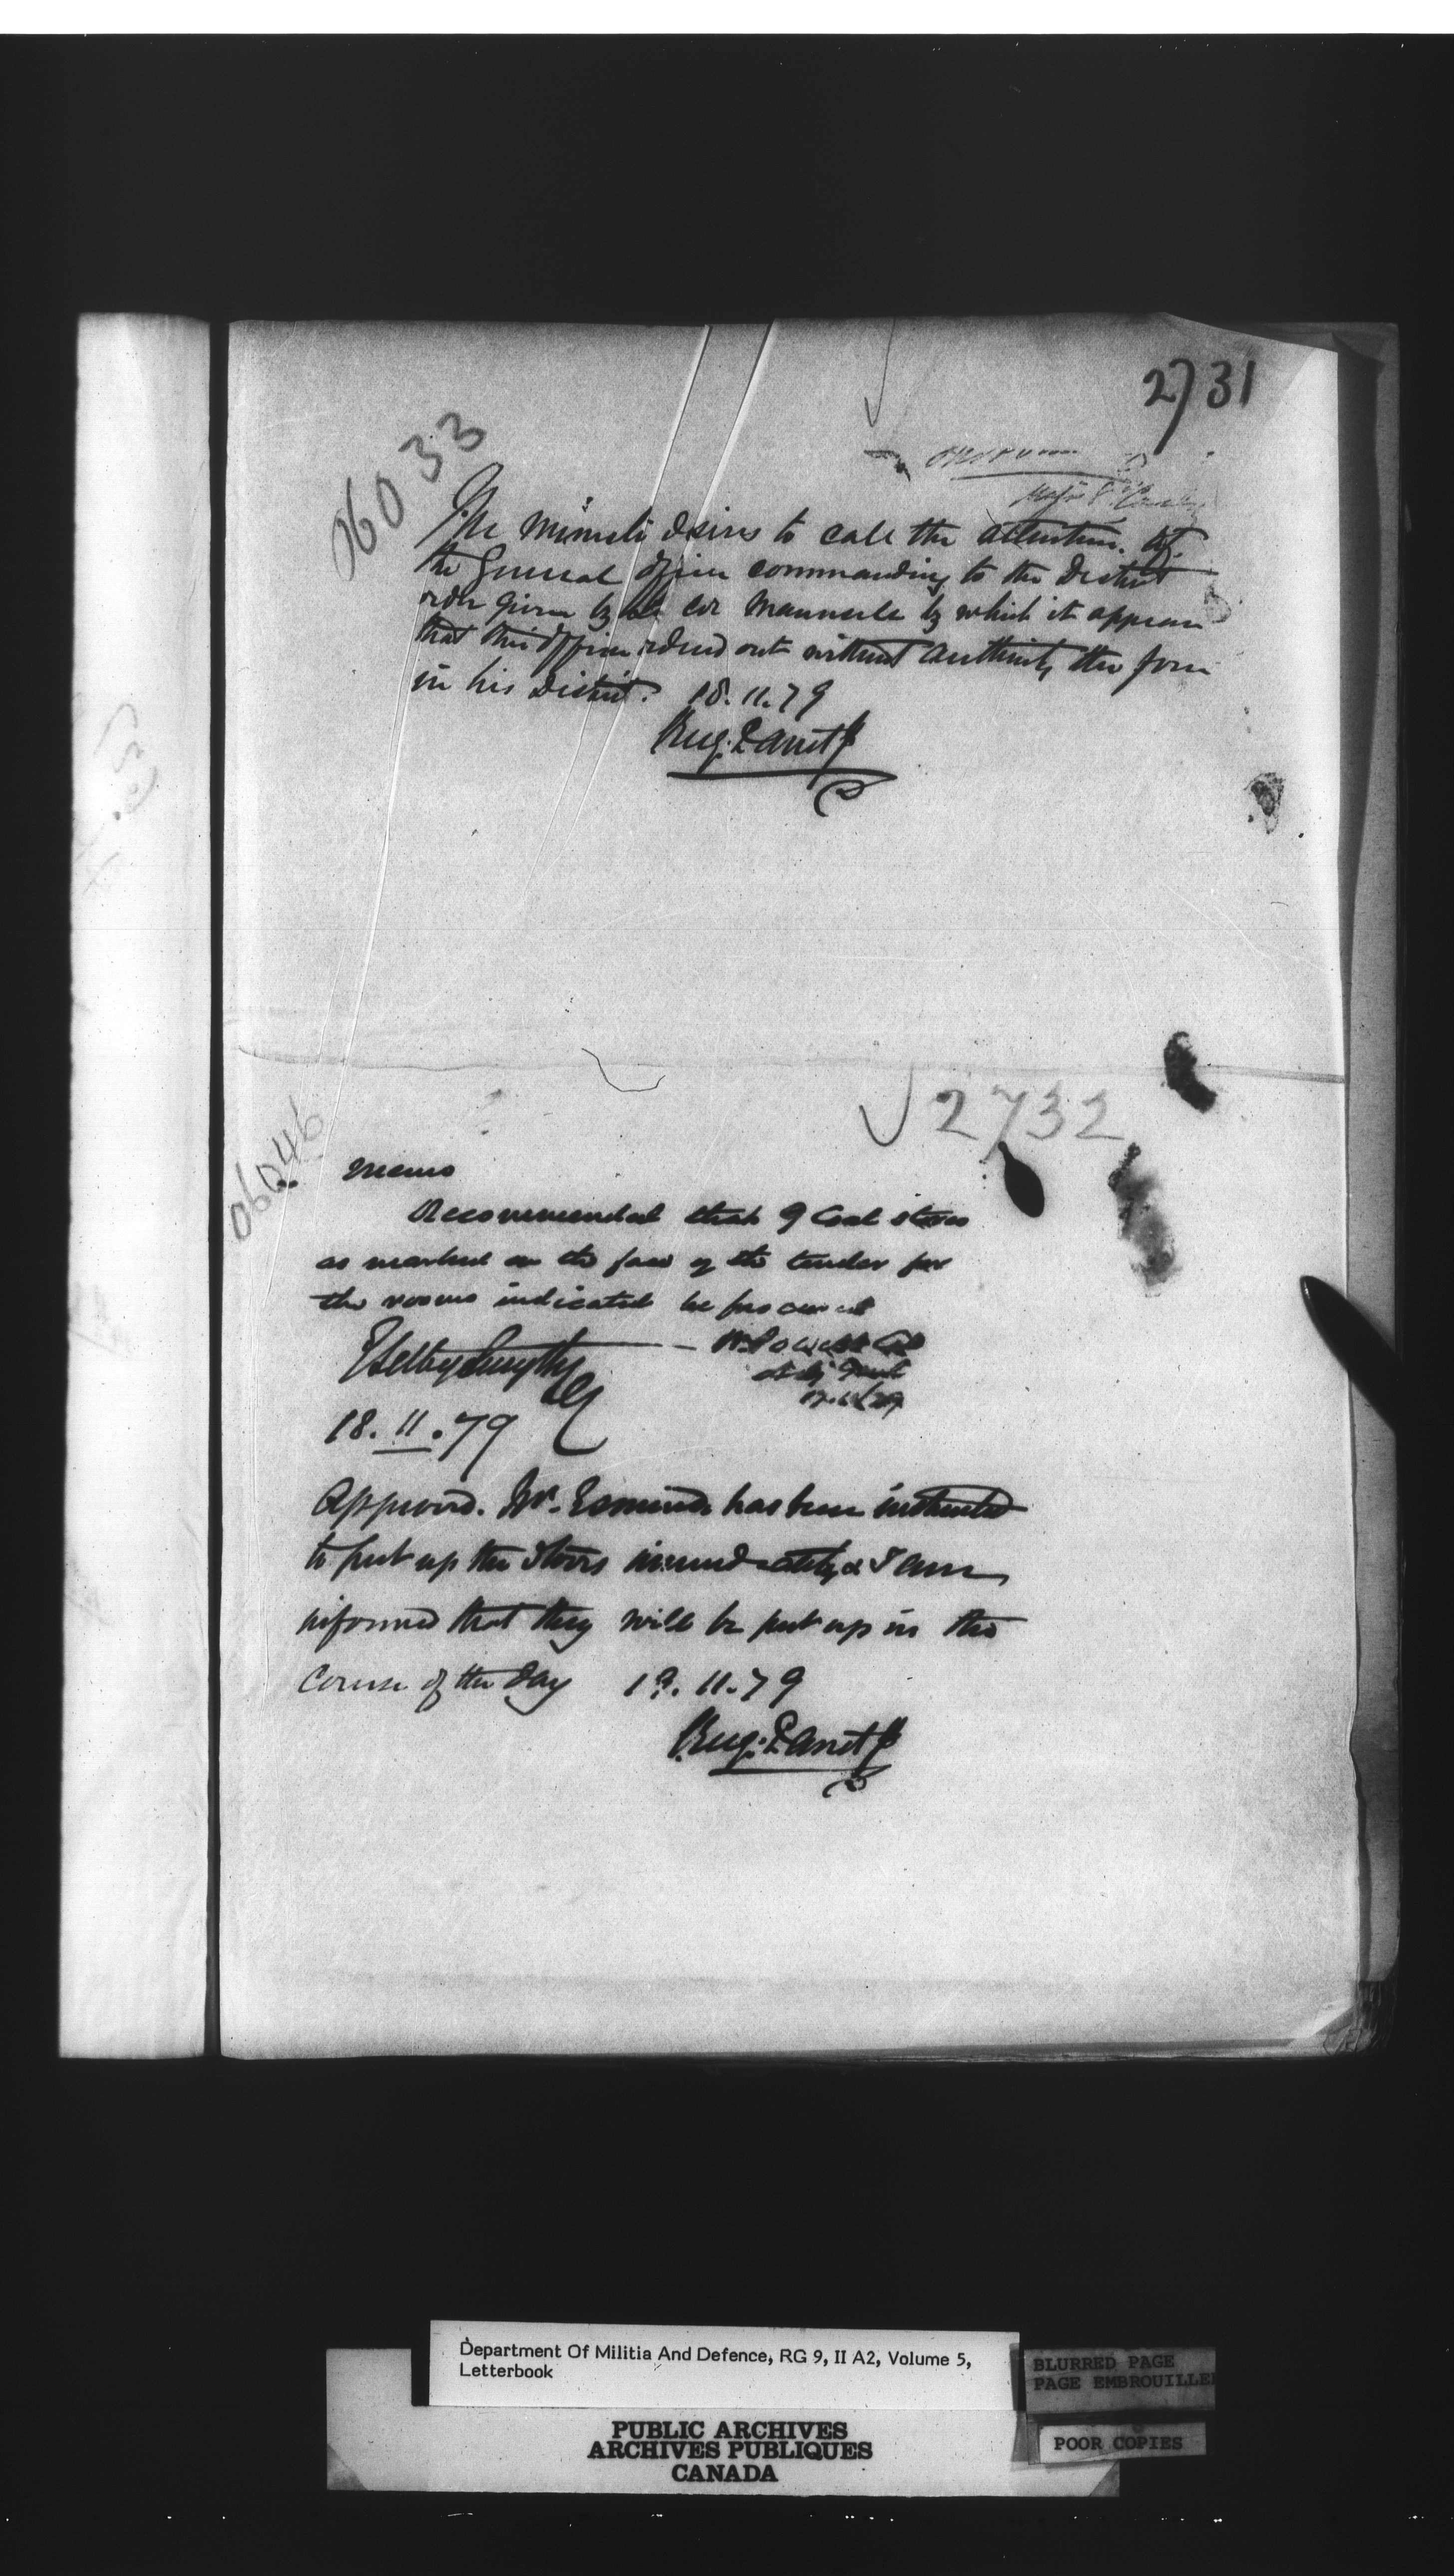 2731
06033
The Minister desires to call the attention of
the General Officer commanding to the District
order given by Lt Col Maunsell by which it appears
that this officer ordered out without authority the force
in his District. 18.11.79
Eug. Panet
2732
06046
Memo
Recommended that 9 Coal stoves
as marked on the face of the tender for
the rooms indicated be procured
E Selby Smyth
W Powell Col
Adj Genl
18.11.79
Approved. Mr. has been instructed
to put up the stoves immediately & I am
informed that they will be put up in the
course of the day 11.79
Eug. Panet
Department Of Militia And Defence, RG 9, II A2, Volume 5,
Letterbook
BLURRED PAGE
PAGE EMBROUILLEE
POOR COPIES
PUBLIC ARCHIVES
ARCHIVES PUBLIQUES
CANADA